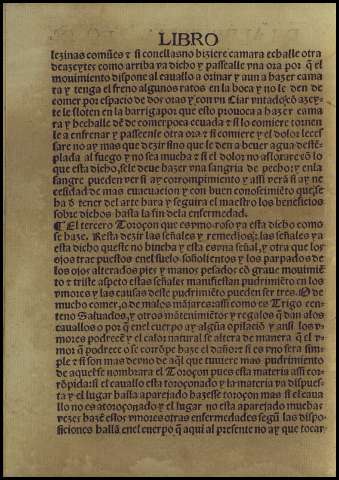 LIBRO
lezinas comũes ⁊ si conellasno hiziere camara echalle otra
deazeytes como arriba ya dicho y passealle vna ora por q̃ el
mouimiento dispone al cauallo a orinar y aun a hazer cama
ra y tenga el freno algunos ratos en la boca y no le den de
comer por espacio de dos oras y con vn
te le froten en la barriga por que esto prouoca a hazer cama
ra y hechalle dẽ de comer poca ceuada ⁊ si lo comiere tornen
le a enfrenar y passeenle otra ora ⁊ si comiere y el dolor lecess
sare no ay mas que dezir sino que le den a beuer agua desté
plada al fuego y no sea mucha ⁊ si el dolor no afloxare cõ lo
que esta dicho, se le deue hazer vna sangria de pecho: y enla
sangre pueden ver si ay corrompimiento y assi verá si ay ne
cesidad de mas euacuacion y con buen conoscimiẽto que se
ha ð tener del arte hara y seguira el maestro los beneficios
sobre dichos hasta la fin dela enfermedad.
¶ El tercero Toroçon que es vmoroso ya esta dicho como
se haze. Resta dezir las señales y remedios: las señales ya
esta dicho que este no hincha y esta es vna señal, y otra que los
ojos trae puestos enel suelo soñolientos y los parpados de
los ojos alterados pies y manos pesados cõ graue mouimiẽ
to ⁊ triste aspeto estas señales manifiestan pudrimiẽto en los
vmores y las causas deste pudrimiẽto puedẽ ser tres. O de
mucho comer, o de malos mãjares: assi como es Trigo cen
teno Saluados, y otros mãtenimiẽtos y regalos q̃ dan alos
cauallos o por q̃ enel cuerpo ay algũa opilació y ansi los v
mores podrecẽ y el calor natural se altera de manera q̃ el v
mor q̃ podrece o se corrõpe haze el daño: ⁊ si es vno sera sim
ple ⁊ si son mas de vno de aq̃l que tuuiere mas pudrimiento
de aquel se nombrara el Toroçon pues esta materia assi cor
rõpida: si el cauallo esta toroçonado y la materia ya dispues
ta y el lugar halla aparejado hazesse toroçon mas si el caua
llo no es atoroçonado y el lugar no esta aparejado muchas
vezes hazẽ estos vmores otras enfermedades segũ las dispo
siciones hallã enel cuerpo q̃ aqui al presente no ay que tocar